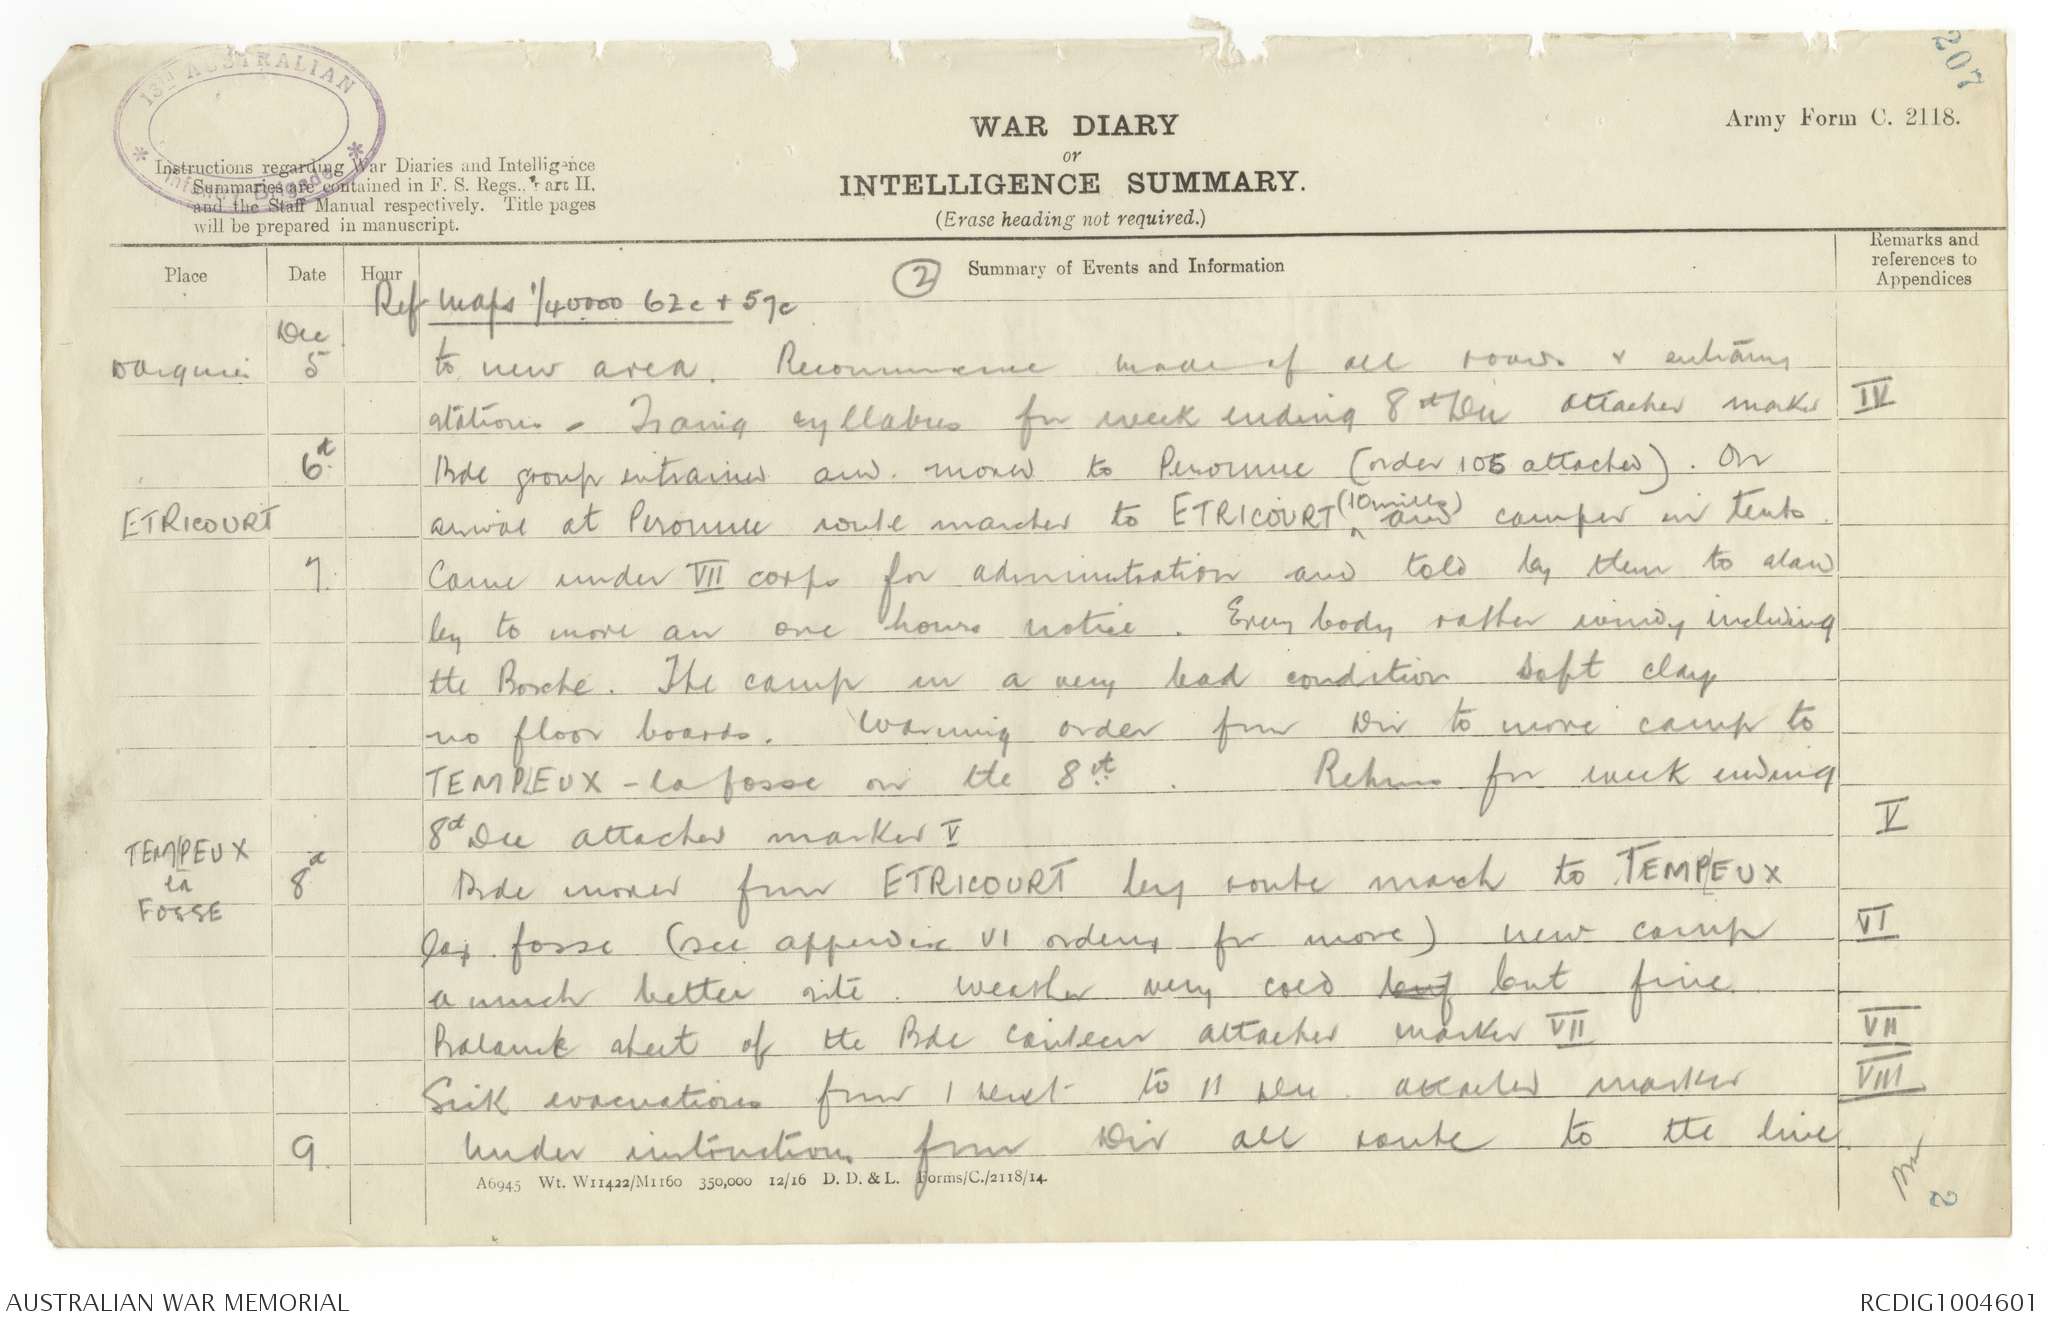 207
13TH AUSTRALIAN
Infantry Brigade
WAR DIARY
or
INTELLIGENCE SUMMARY.
(Erase heading not required.)
Army Form C. 2118.
Instructions regarding War Diaries and Intelligence
Summaries are contained in F. S. Regs., Part II.
and the Staff Manual respectively. Title pages
will be prepared in manuscript.
Place Date Hour Summary of Events and Information Remarks and references to Appendices
2
Ref Maps 1/40000 62c + 57c
Dec
5 to new area. Reconnaissance made of all roads & entraining
stations - Traing syllabus for week ending 8th Dec attached marked IV
6th Bde group entrained and moved to Peronne (order 105 attached). On
ETRICOURT arrival at Peronne route marched to ETRICOURT (10 miles) and camped in tents.
7. Came under VII corps for administration and told by them to stand
by to move an one hours notice. Every body rather windy including
the Bosche. The camp in a very bad condition soft clay
no floor boards. Warning order from Div to move camp to
TEMPLEUX - la fosse on the 8th. Returns for week ending
8th Dec attached marked V V
TEMPLEUX la FOSSE 8th Bde moved from ETRICOURT by route march to TEMPLEUX
la fosse (see appendix VI orders for move) new camp VI
a much better site. Weather very cold but but fine.
Balance sheet of the Bde Canteen attached marked VII VII
Sick evacuations from 1 to 11 Dec. attached marked VIII
9. Under instructions from Div all route to the line
A6945 Wt. W11422/M1160 350,000 12/16 D. D. & L. Forms/C./2118/14.
2
AUSTRALIAN WAR MEMORIAL
RCDIG1004601